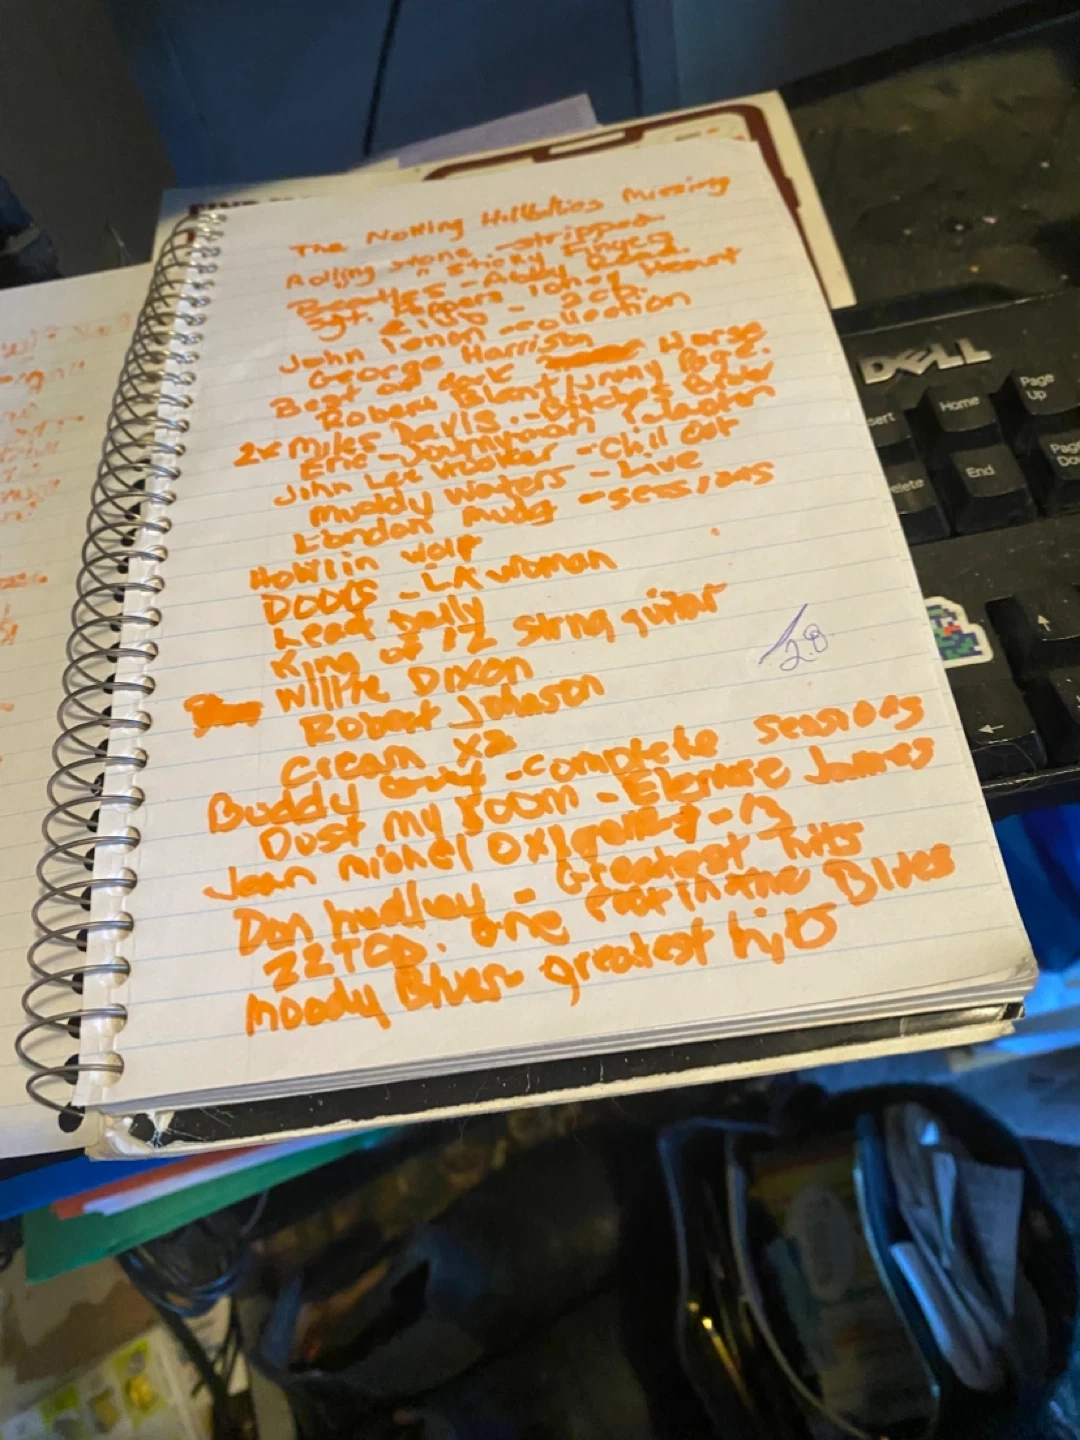 The Notting Hillbillies Missing
Rolling stone - stripped
" sticky Finges
Beatles - Abby Road.
Sgt. Peppers lonely Heart
John lenon - collection
George Harrison
Best of dark Horse
Robert Plant/Jimmy Page.
2x Miles Davis - Bitches Brew
Eric - Journyman Clapton
John Lee Hooker - Chill out
Muddy Waters - Live
London Mudg - sessions
Howlin wolf
Doors - LA woman
Lead Belly
King of 12 string guitar
Willie Dixon
Robert Johnson
Cream x2
Buddy Guy - complete sessions
Dust my room - Elemore James
Jean michel
Don hedley - Greatest hits
ZZTOP. one foot in the Blues
Moody Blues - greatest hits
28
DELL
Home
Page
Up
End